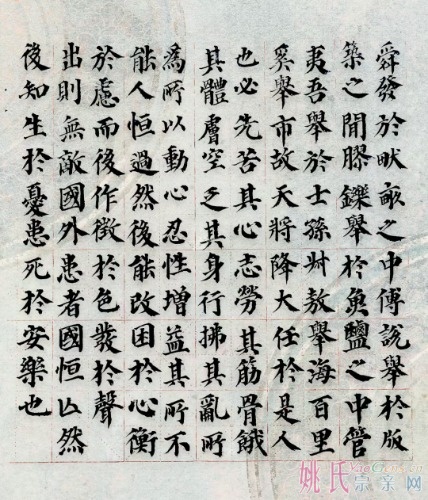 舜發於畎畝之中傅說舉於版
築之間膠鑠舉於魚鹽之中管
夷吾舉於士孫叔敖舉海百里
奚舉市故天將降大任於是人
也必先苦其心志勞其筋骨餓
其體膚空乏其身行拂其亂所
為所以動心忍性增益其所不
能人恒過然後能改困於心衡
於慮而後作徵於色發於聲
出則無敵國外患者國恒亡然
後知生於憂患死於安樂也
姚氏宗亲网